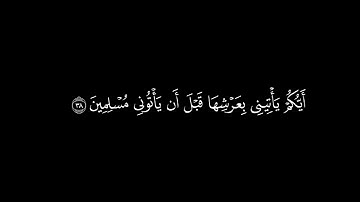 أَيُّكُمْ يَأْتِينِي بِعَرْشِهَا قَبْلَ أَن يَأْتُونِي مُسْلِمِينَ ٣٨